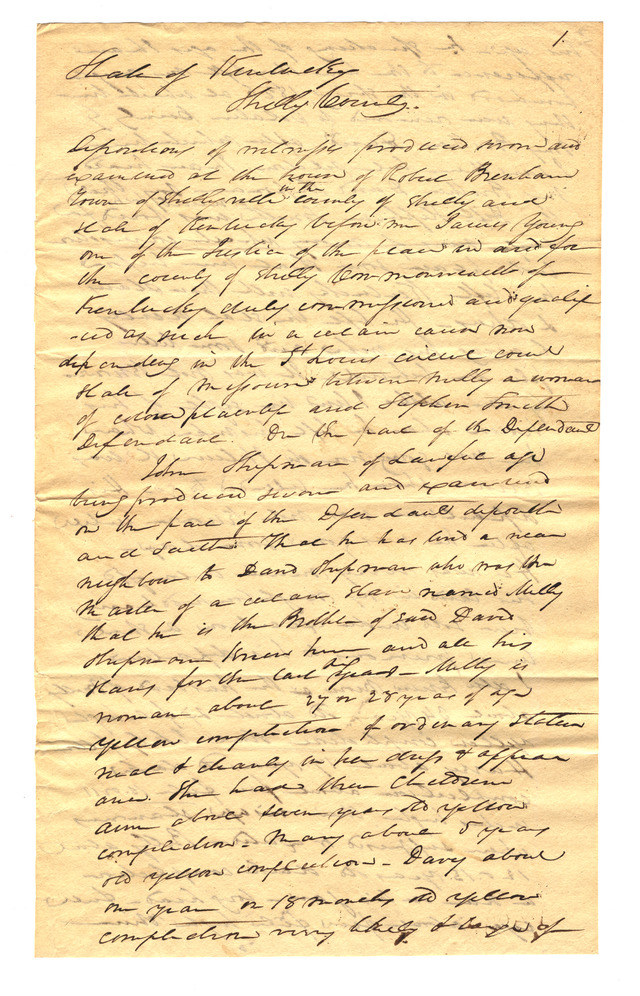 1.
State of Kentucky
Shelby County.
Depositions of witnesses produced sworn and
examined at the house of Robert Brenham
Town of Shelbyville in the county of Shelby and
State of Kentucky before me James Young
one of the Justice of the peace in and for
the county of Shelby Commonwealth of
Kentucky duly commissioned and qualif
-ied as such in a certain cause now
depending in the St Louis circuit court
State of Missouri between Milly a woman
of colour plaintiff and Stephen Smith
Defendant. On the part of the Defendant
John Shipman of Lawful age
being produced sworn and examined
on the part of the Defendant deposeth
and Saith. That he has lived a near
neighbour to David Shipman who was the
Master of a certain Slave named Milly
that he is the Brother of said David
Shipman Knew him and all his
slaves for the last years - Milly is
woman about 27 or 28 years of age
yellow complection of ordinary stature
neat & cleanly in her dress & appear
ance. She had three Children
about seven years old yellow
complection - Mary about 5 years
old yellow complection - Davy about
one year or 18 months old yellow
complection very likely & large of